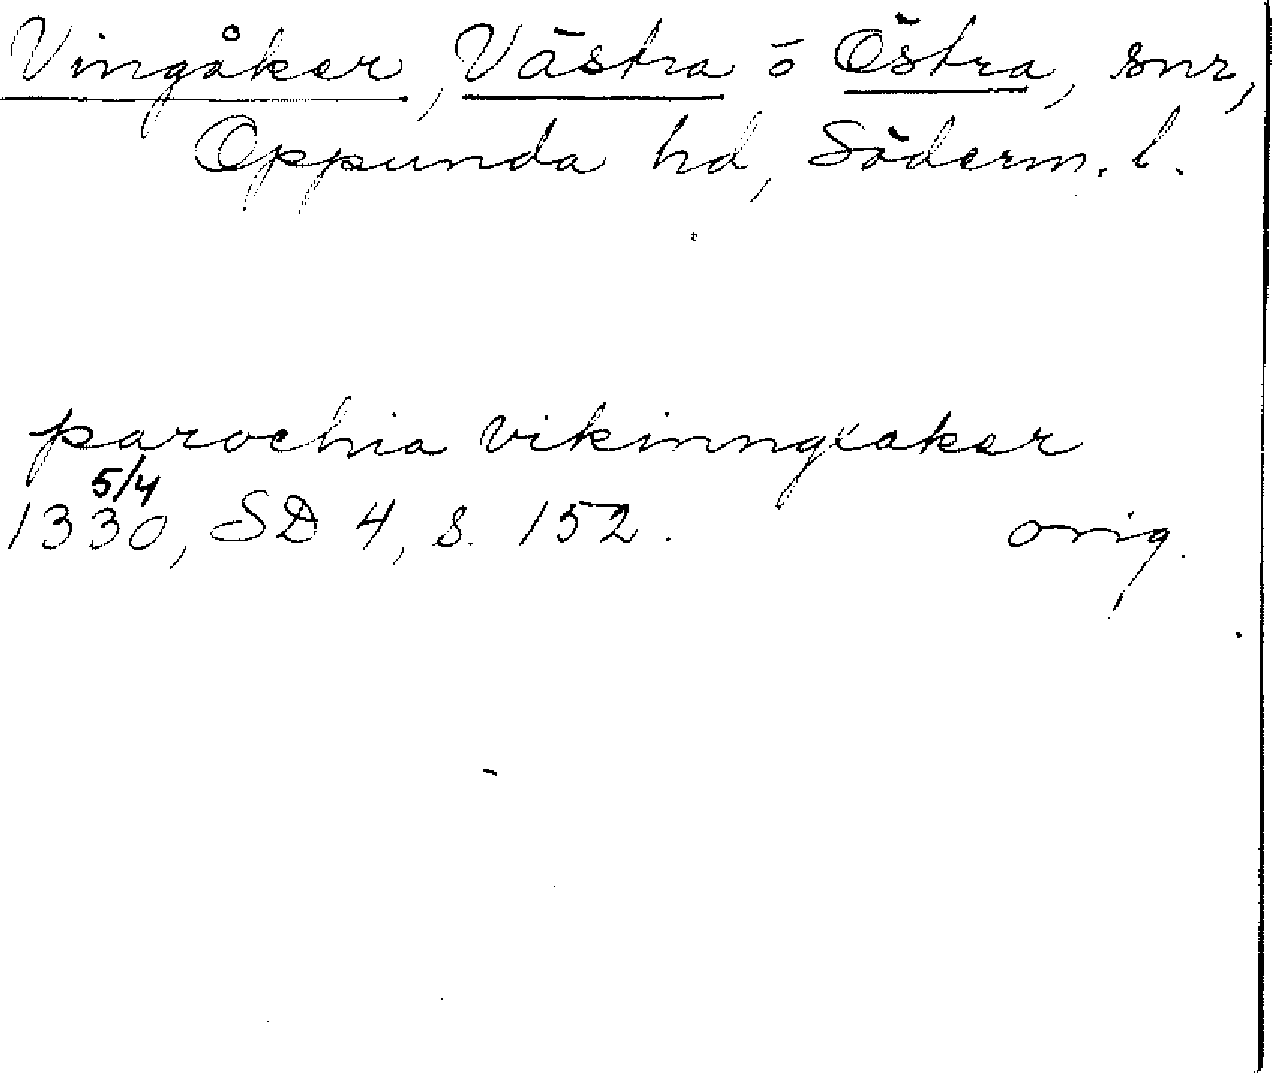 Vingåker, Västra o Östra, snr,
Oppunda hd, Söderm. l.
parochia vikinngiaker
5/4
1330, SD 4, s. 152. orig.